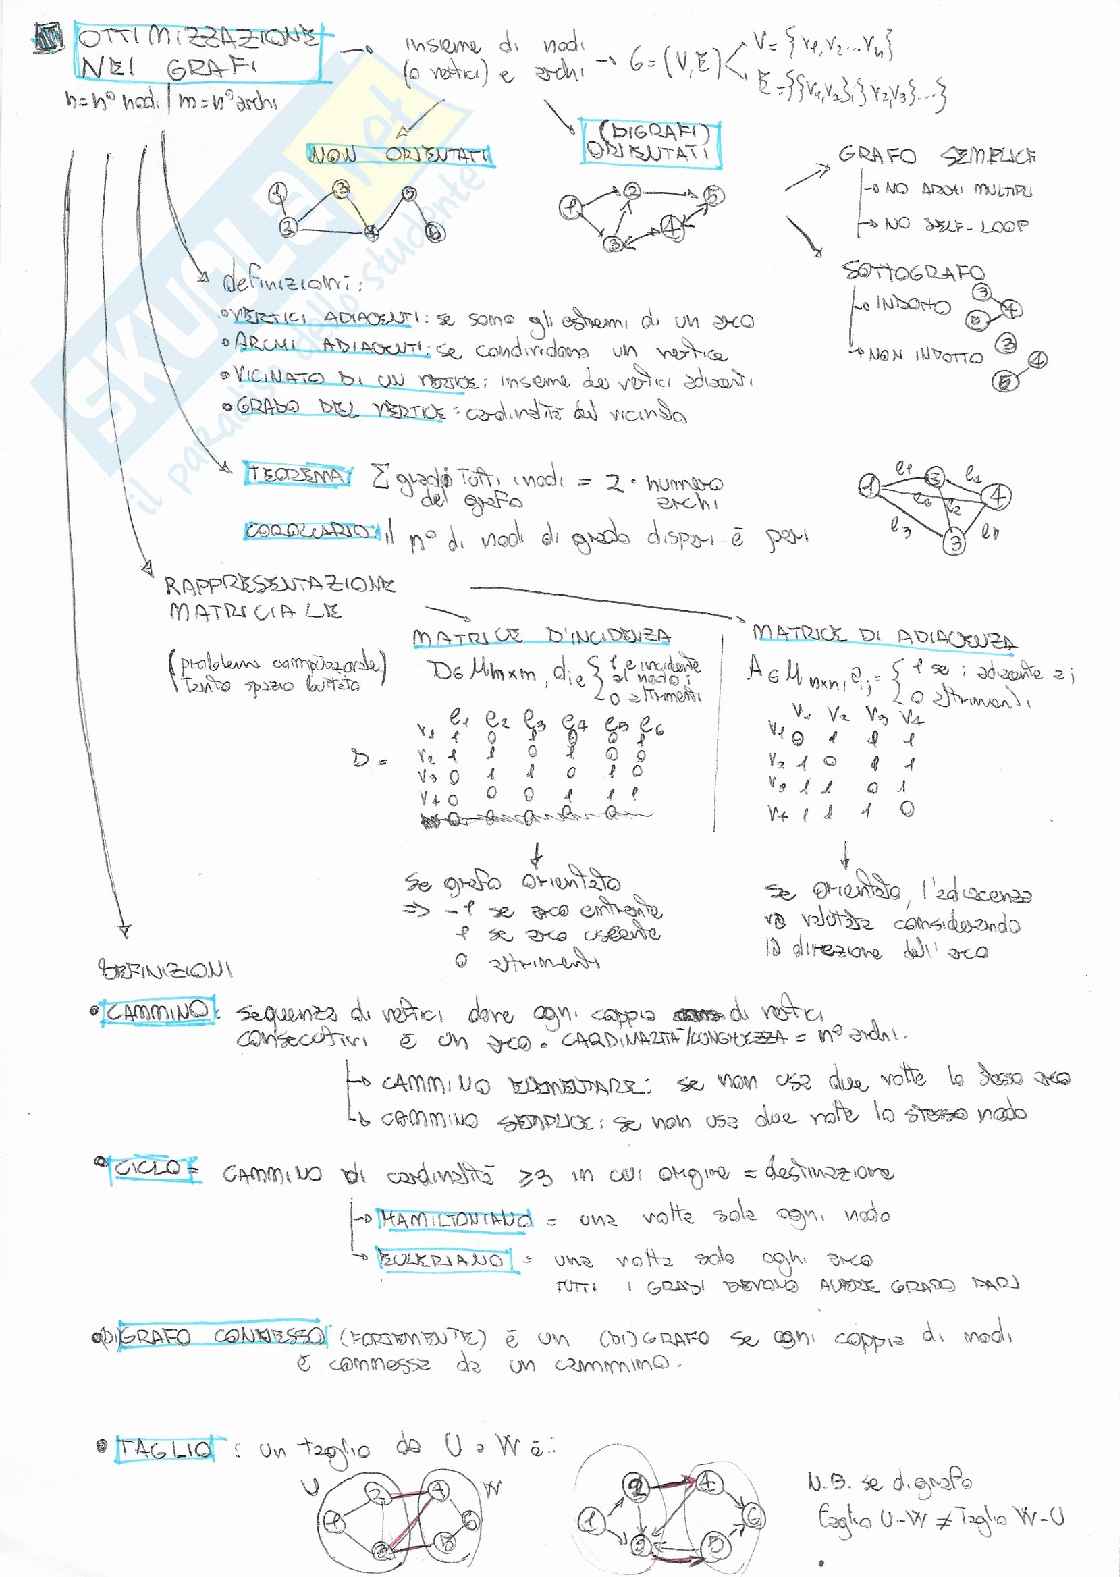 OTTIMIZZAZIONE
NEI GRAFI
n=n° nodi | m=n° archi
insieme di nodi
(o vertici) e archi → G=(V,E)
V={v1,v2...vn}
E={{v1,v2},{v2,v3}...}
NON ORIENTATI
(DIGRAFI)
ORIENTATI
GRAFO SEMPLICE
→ NO ARCHI MULTIPLI
→ NO SELF-LOOP
SOTTOGRAFO
→ INDOTTO
→ NON INDOTTO
SKUOLA.net
il paradiso dello studente
definizioni:
• VERTICI ADIACENTI: se sono gli estremi di un arco
• ARCHI ADIACENTI: se condividono un vertice
• VICINATO DI UN VERTICE: insieme dei vertici adiacenti
• GRADO DEL VERTICE: cardinalità del vicinato
TEOREMA Σ gradi tutti i nodi = 2 · numero
del grafo archi
COROLLARIO: il n° di nodi di grado dispari è pari
RAPPRESENTAZIONE
MATRICIALE
(problema complessità)
(tanto spazio buttato)
MATRICE D'INCIDENZA
1 e incidente
al nodo i
0 altrimenti
e1 e2 e3 e4 e5 e6
D =
v1 1 0 1 0 0 1
v2 1 1 0 1 0 0
v3 0 1 1 0 1 0
v4 0 0 0 1 1 1
se grafo orientato
=> -1 se arco entrante
1 se arco uscente
0 altrimenti
MATRICE DI ADIACENZA
1 se i adiacente a j
0 altrimenti
v1 v2 v3 v4
v1 0 1 1 1
v2 1 0 1 1
v3 1 1 0 1
v4 1 1 1 0
se orientato, l'adiacenza
va valutata considerando
la direzione dell'arco
DEFINIZIONI
• CAMMINO: sequenza di vertici dove ogni coppia di vertici
consecutivi è un arco. CARDINALITÀ/LUNGHEZZA = n° archi.
→ CAMMINO ELEMENTARE: se non usa due volte lo stesso arco
→ CAMMINO SEMPLICE: se non usa due volte lo stesso nodo
• CICLO = CAMMINO di cardinalità ≥3 in cui origine = destinazione
→ HAMILTONIANO = una volta sola ogni nodo
→ EULERIANO = una volta sola ogni arco
TUTTI I GRADI DEVONO AVERE GRADO PARI
• (DI)GRAFO CONNESSO (FORTEMENTE) è un (DI)GRAFO se ogni coppia di nodi
è connessa da un cammmino.
• TAGLIO: un taglio da U a W è:
U W
N.B. se digrafo
taglio U-W ≠ Taglio W-U